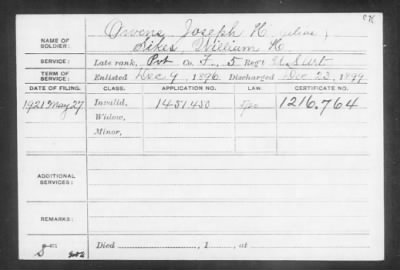 C 76
NAME OF SOLDIER: Owens, Joseph H (alias)
Sikes, William H.
SERVICE: Late rank, Pvt Co. F, 5 Regt U.S. Art
TERM OF SERVICE: Enlisted Dec 9, 1896 Discharged Dec 23, 1899
DATE OF FILING. CLASS. APPLICATION NO. LAW. CERTIFICATE NO.
1921 May 27 Invalid, 1451450 1216,764
Widow,
Minor,
ADDITIONAL SERVICES:
REMARKS:
Died , 1 , at